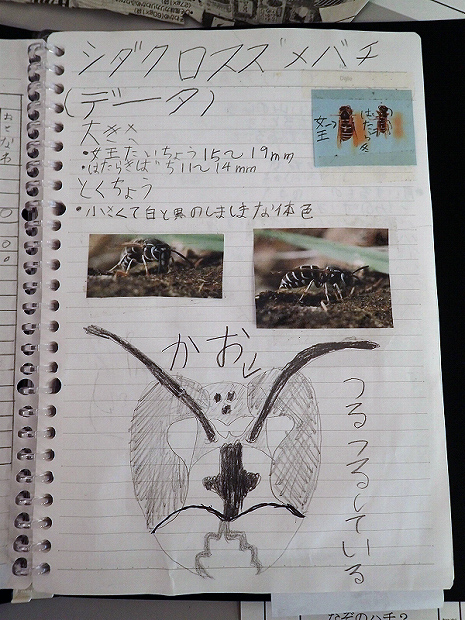 シダクロスズメバチ
(データ)
大きさ
・女王たいちょう15〜19mm
・はたらきばち11〜14mm
とくちょう
・小さくて白と黒のしましまな体色
女王→
はたらき
かお
つるつるしている
なぞのハチ?